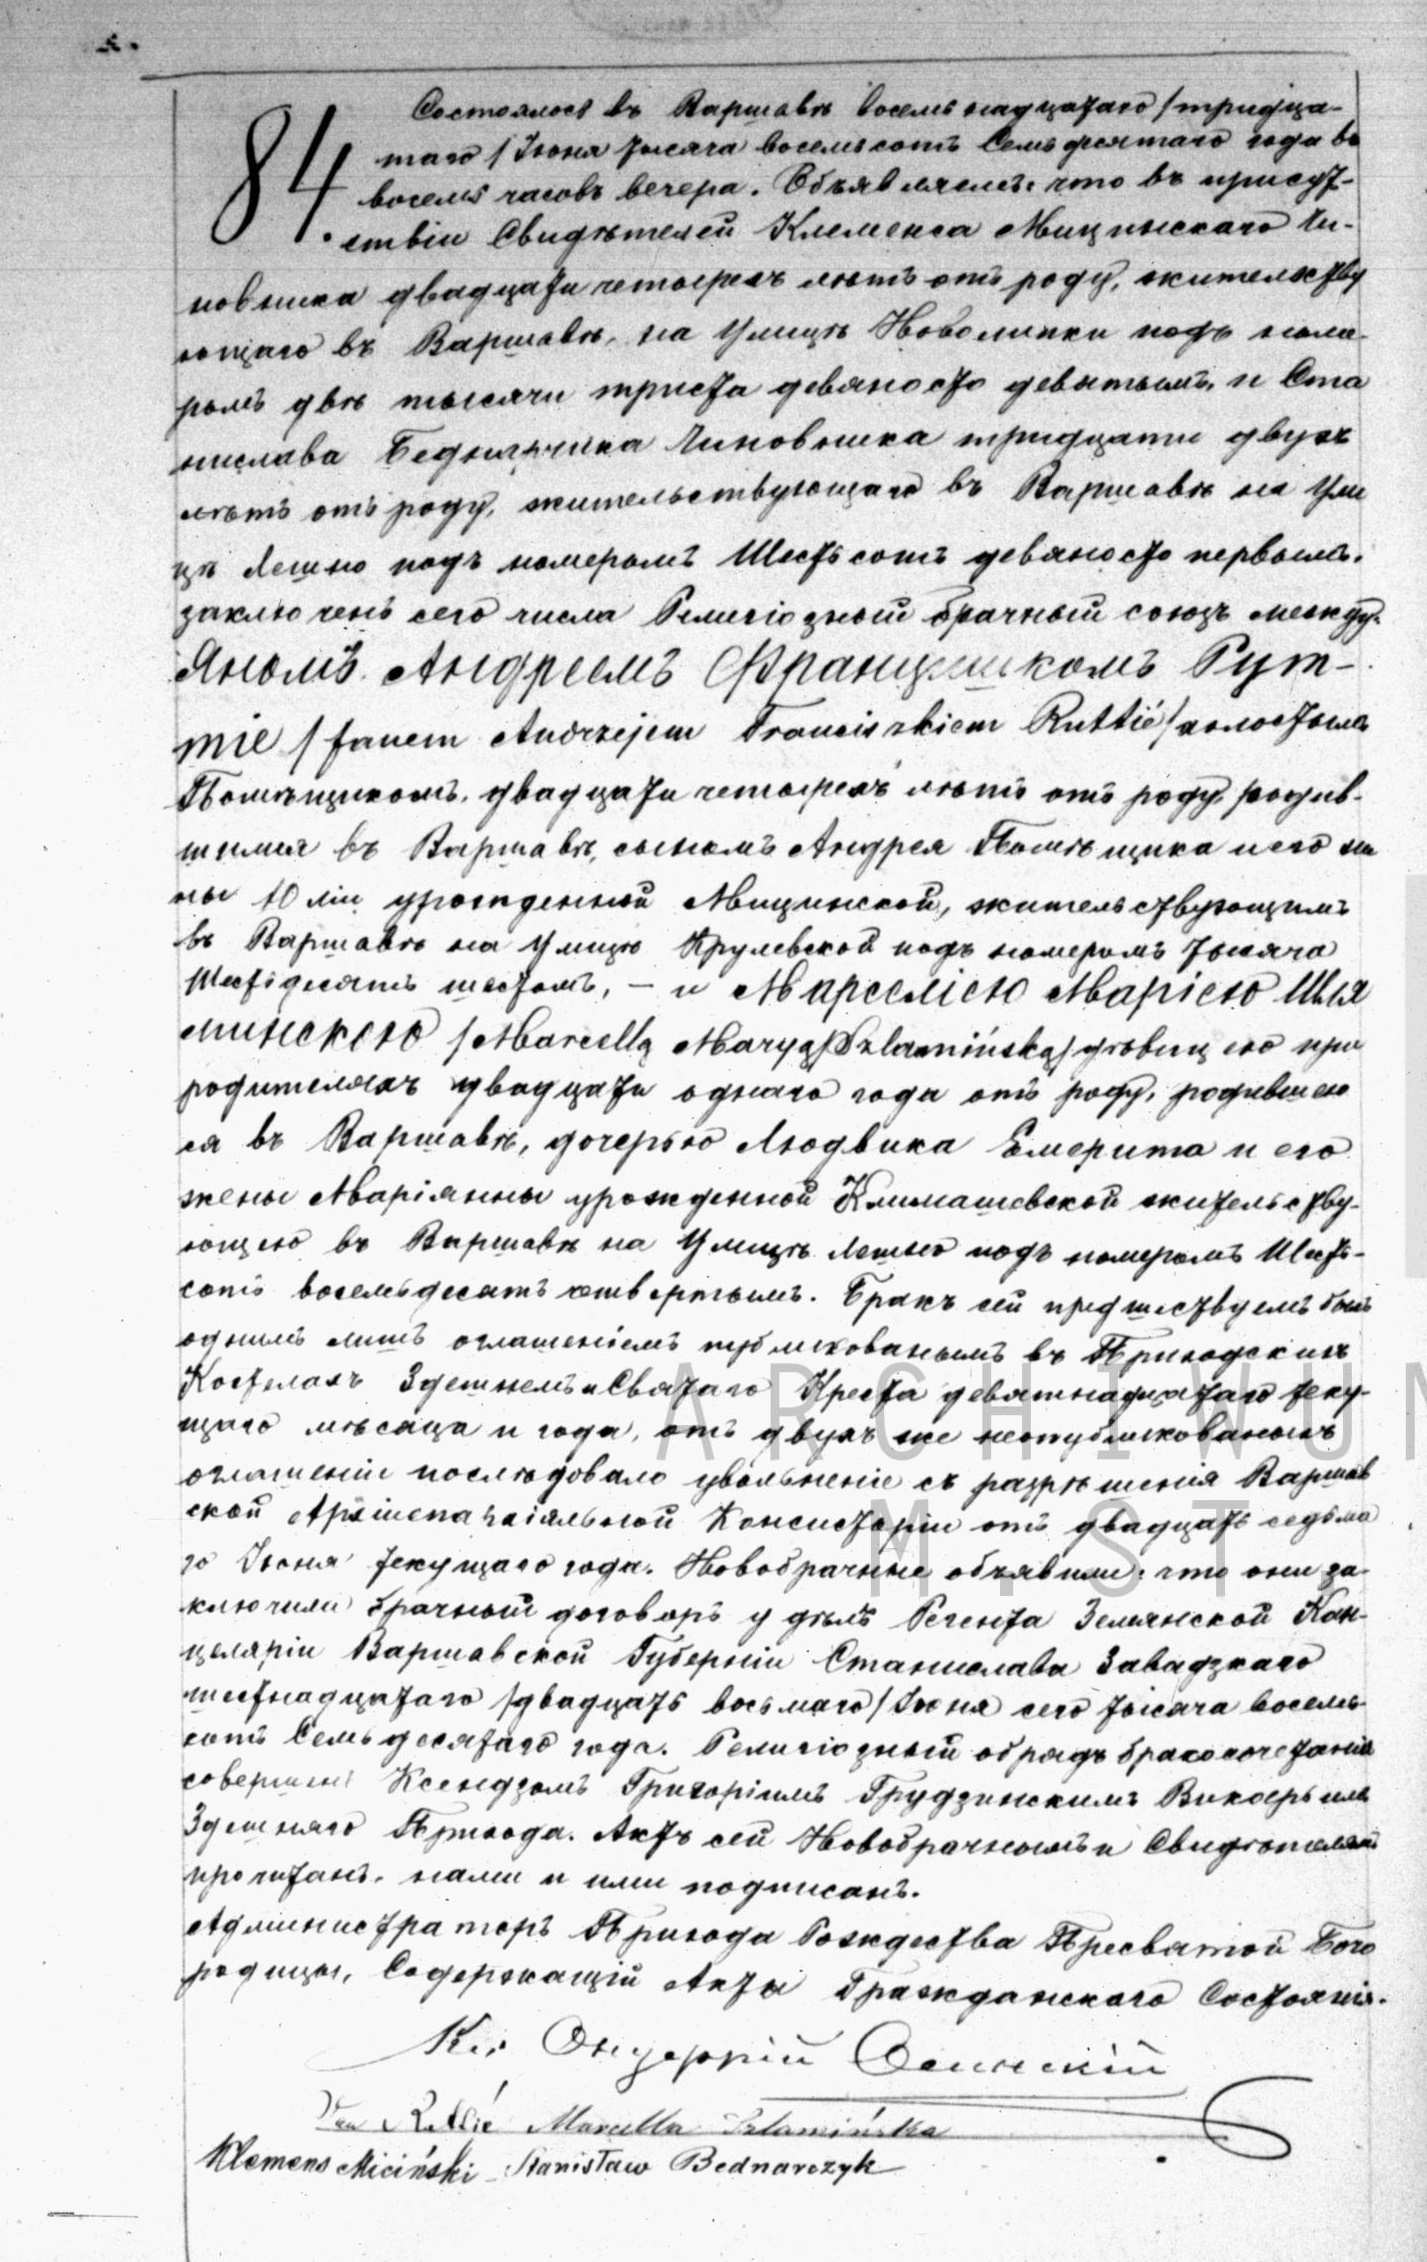 84.
Состоялось въ Варшавѣ восемьнадцатаго /тридца-
таго/ Іюня тысяча восемьсотъ Семьдесятаго года въ
восемь часовъ вечера. Объявляемъ: что въ присут-
ствіи Свидѣтелей Клеменса Мицинскаго Чи-
новника двадцати четырехъ лѣтъ отъ роду, жительству
ющаго въ Варшавѣ, на Улицѣ Новолипки подъ номе-
ромъ двѣ тысячи триста девяносто девятымъ, и Ста
нислава Беднарчика Чиновника тридцати двухъ
лѣтъ отъ роду, жительствующаго въ Варшавѣ на Ули
цѣ Лешно подъ номеромъ Шестьсотъ девяносто первымъ,
заключенъ сего числа Религіозный брачный союзъ между
Яномъ Андреемъ Францишкомъ Рут-
тіе /Janem Andrzejem Franciszkiem Ruttié/ холостымъ
Помѣщикомъ, двадцати четырехъ лѣтъ отъ роду, родив-
шимся въ Варшавѣ, сыномъ Андрея Помѣщика и его же
ны Юліи урожденной Мицинской, жительствующимъ
въ Варшавѣ на Улицѣ Крулевской подъ номеромъ тысяча
Шестьдесятъ шестомъ, — и Марселіею Маріею Шля
минскою /Marcellą Maryą Szlamińską/ дѣвицею при
родителяхъ двадцати одного года отъ роду, родившею
ся въ Варшавѣ, дочерью Людвика Емерита и его
жены Маріянны урожденной Климашевской жительству-
ющею въ Варшавѣ на Улицѣ Лешно подъ номеромъ Шесть-
сотъ восемьдесятъ четвертымъ. Бракъ сей предшествуемъ былъ
однимъ лишь оглашеніемъ публикованымъ въ Приходскихъ
Костелахъ Здешнемъ и Святаго Креста девятнадцатаго теку-
щаго мѣсяца и года, отъ двухъ же неопубликованыхъ
оглашеніи послѣдовало увольненіе съ разрѣшенія Варшав
ской Архіепархіяльной Консисторіи отъ двадцать седьма
го Іюня текущаго года. Новобрачные объявили: что они за-
ключили брачный договоръ у дѣлъ Регента Землянской Кан-
целяріи Варшавской Губерніи Станислава Завадзкаго
шестнадцатаго /двадцать восьмаго/ Іюня сего тысяча восемь-
сотъ Семьдесятаго года. Религіозный обрядъ бракосочетанія
совершенъ Ксендзомъ Григоріимъ Грудзинскимъ Викаріемъ
Здешняго Прихода. Актъ сей Новобрачнымъ и Свидѣтелямъ
прочитанъ, нами и ими подписанъ.
Администраторъ Прихода Рождества Пресвятой Бого
родицы, Содержащій Акты Гражданскаго Состоянія.
Кс. Осинскій
Jan Ruttié Marcella Szlamińska
Klemens Miciński Stanisław Bednarczyk
ARCHIWUM
M. ST.